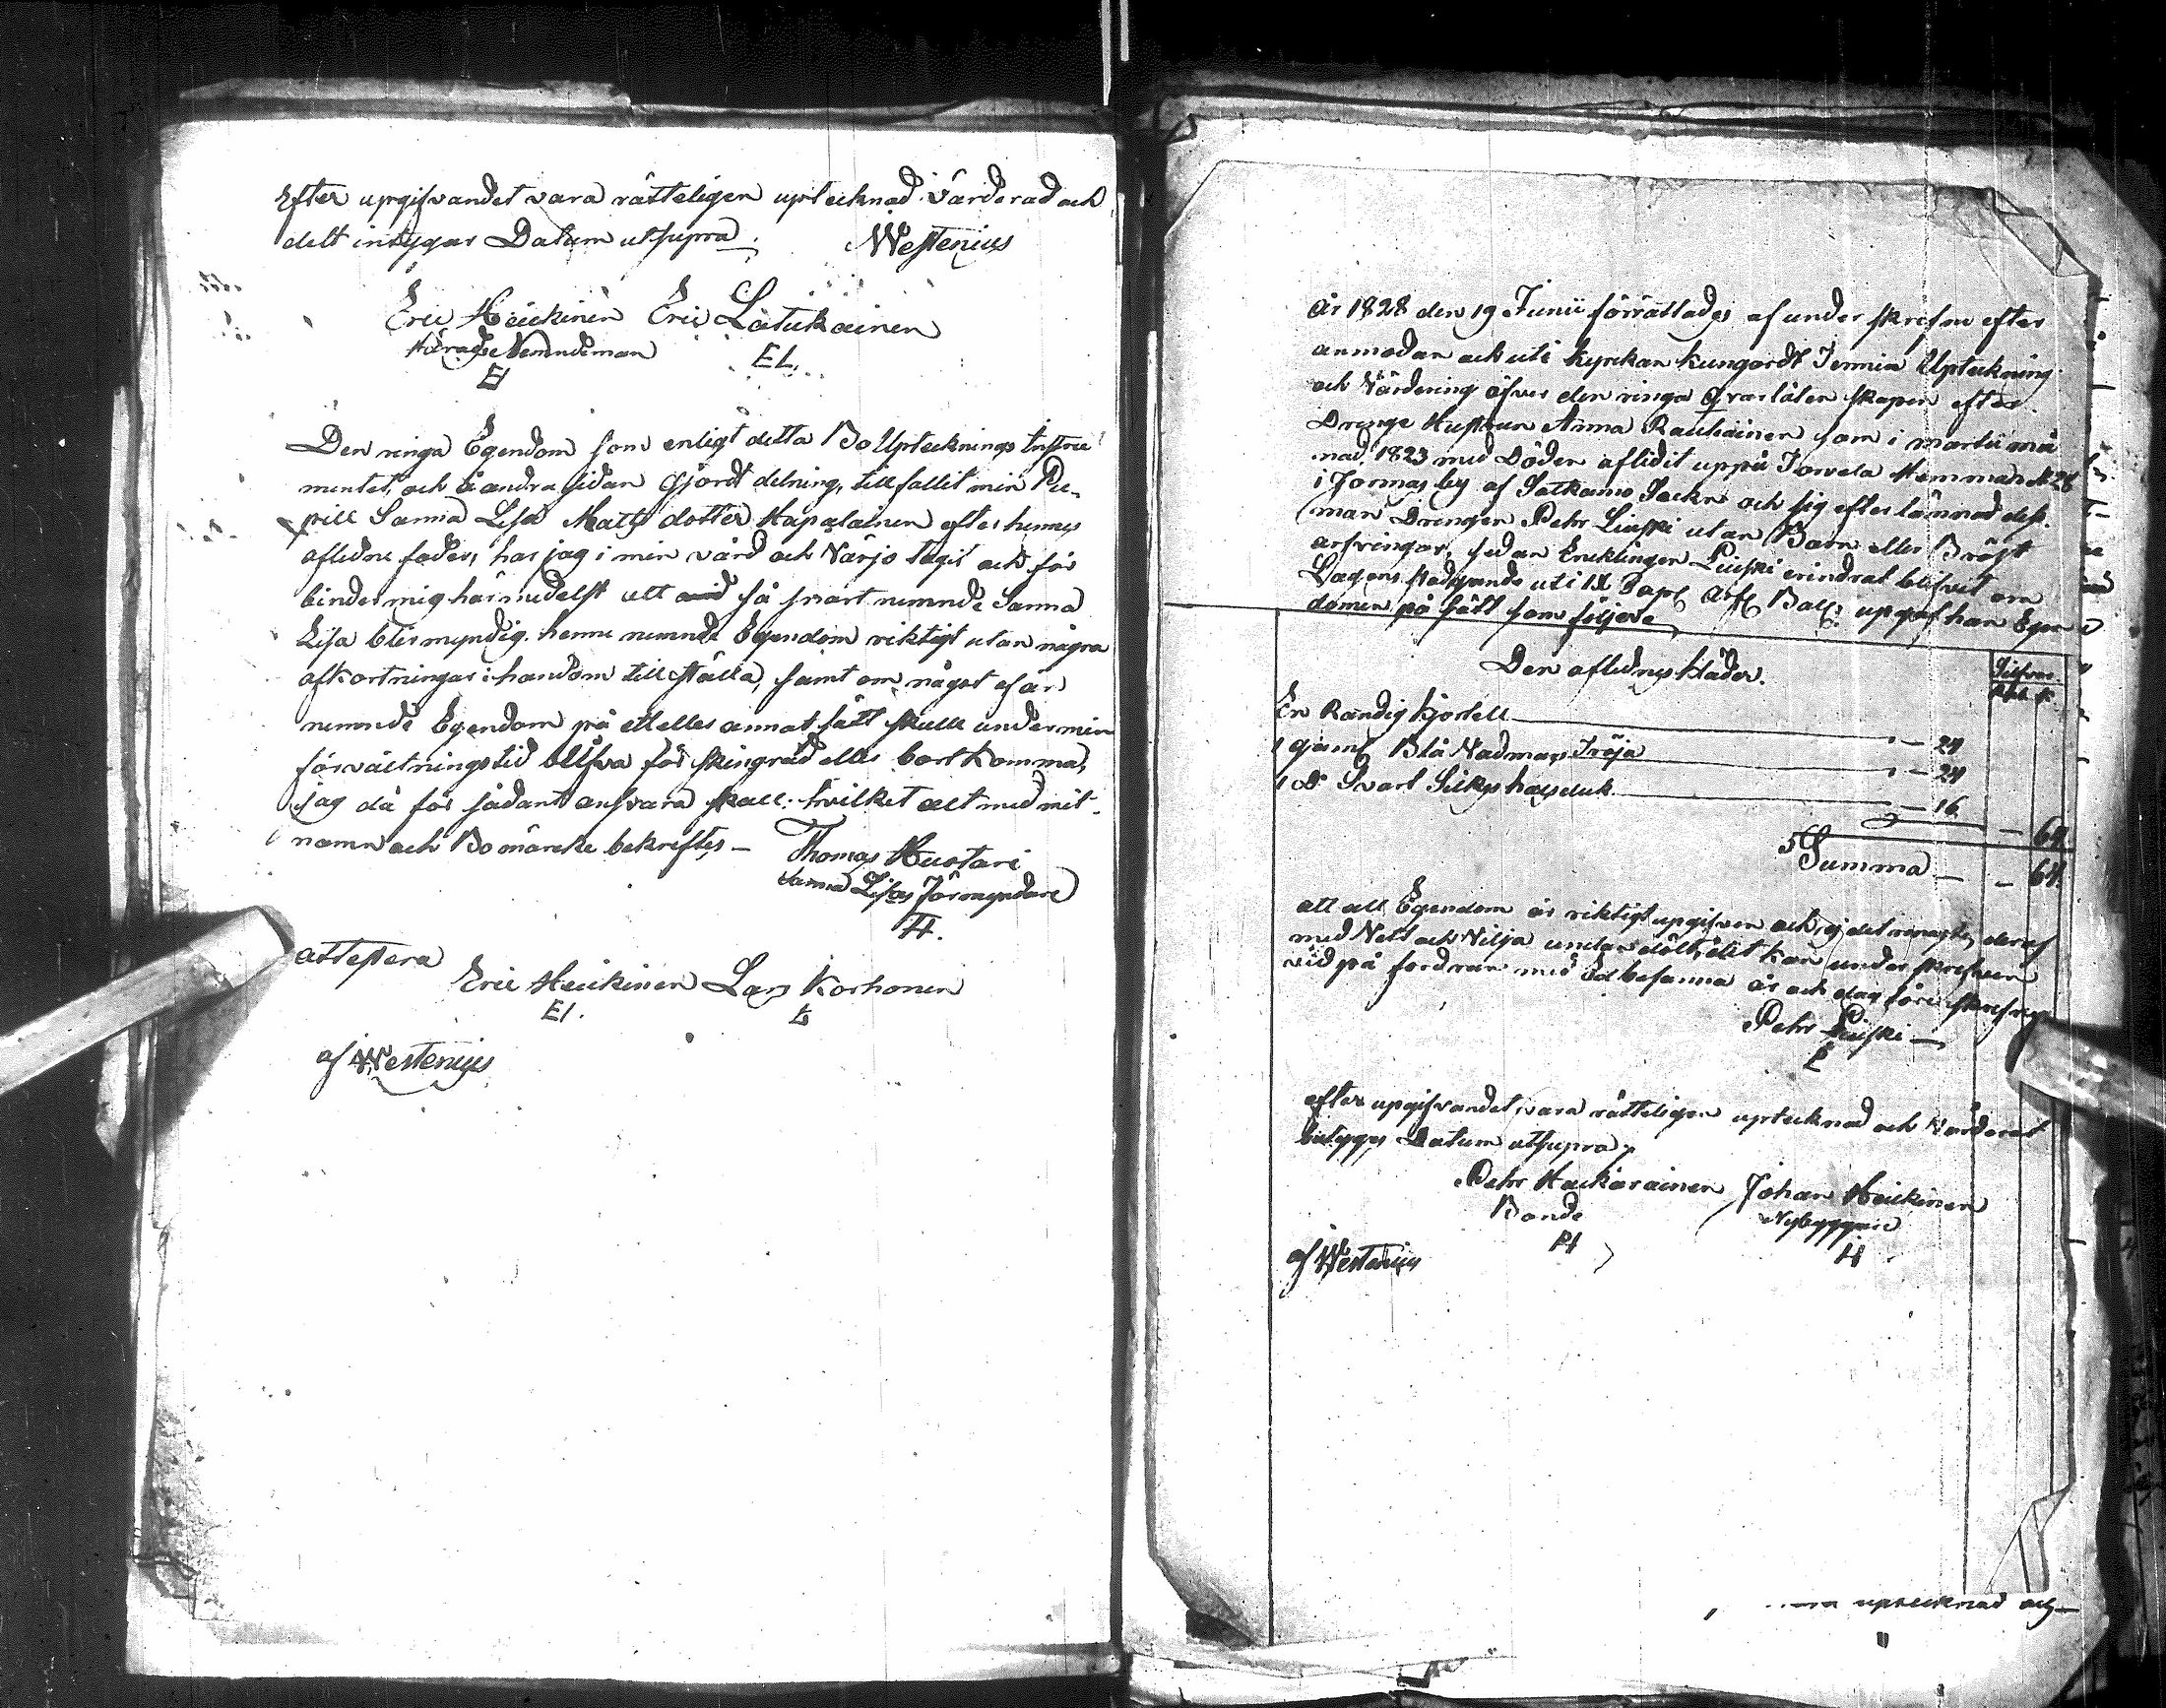 Efter upgifvandet vara rätteligen uptecknad värderad och
delt intygar Datum utsupra. Westenius
Eric Heickinen Eric Latukainen
Härads Nemndeman EL.
EH
Den ringa Egendom som enligt detta Bo Uptecknings Instru
mentet, och å andra sidan Gjordt delning, tillfallit min Pu-
pill Sanna Lisa Matts dotter Hapalainen efter hennes
aflidne fader, har jag i min vård och Värjo tagit och för
binder mig härmedelst att så snart nemnde Sanna
Lisa blir myndig henne nemnde Egendom riktigt utan några
afkortningar i handom tillställa, samt om något af ar
nemnde Egendom på ett eller annat sätt skulle under min
förvaltningstid blifva förskingrad eller bortkomma,
jag då för sådant ansvara skall. hvilket alt med mit
namn och Bomärcke bekräftes —
Thomas Huotari
Sanna Lisas Förmyndare
TH.
attestera
Eric Heickinen Lars Korhonen
EH. L
af Westenius
År 1828 den 19 Junii förrättades af under skrefne efter
anmodan och uti kyrckan kungordt Termin Upteckning
och Värdering öfver den ringa Qvarlåtenskapen efter
Drenge Hustrun Anna Rauhainen som i martii må
nad 1823 med Döden aflidit uppå Jorvela Hemman N 28
i Jormas by af Sotkamo Sockn och sig efterlämnad des
man Drengen Pehr Liuski utan Barn eller Bröst
arfvingar, sedan Encklingen Liuski erindrat blifvit om
Lagens stadgande uti 9 Cap Arf Balk: upgaf han Egen
domen på sätt som följer
Den aflidnes kläder. Silfver
Rbl. K.
En Randig kjortell — 24
1 gaml Blå Vadmars Tröja — 24
1 D:o Svart Silkes halsduk — 16 — 64
Summa — — 64.
att all Egendom är riktigt upgifven och ej det ringaste deraf
med Vett och Vilja undandölt, det kan underskrefven
vid på fordran med Ed besanna år och dag föreskrefne
Pehr Liuski —
P
efter upgifvandet vara rätteligen uptecknad och Värderat
betyges Datum utsupra.
Pehr Haukarainen Johan Heickinen
Bonde Nybyggare
PH H
af Westenius
uptecknad och